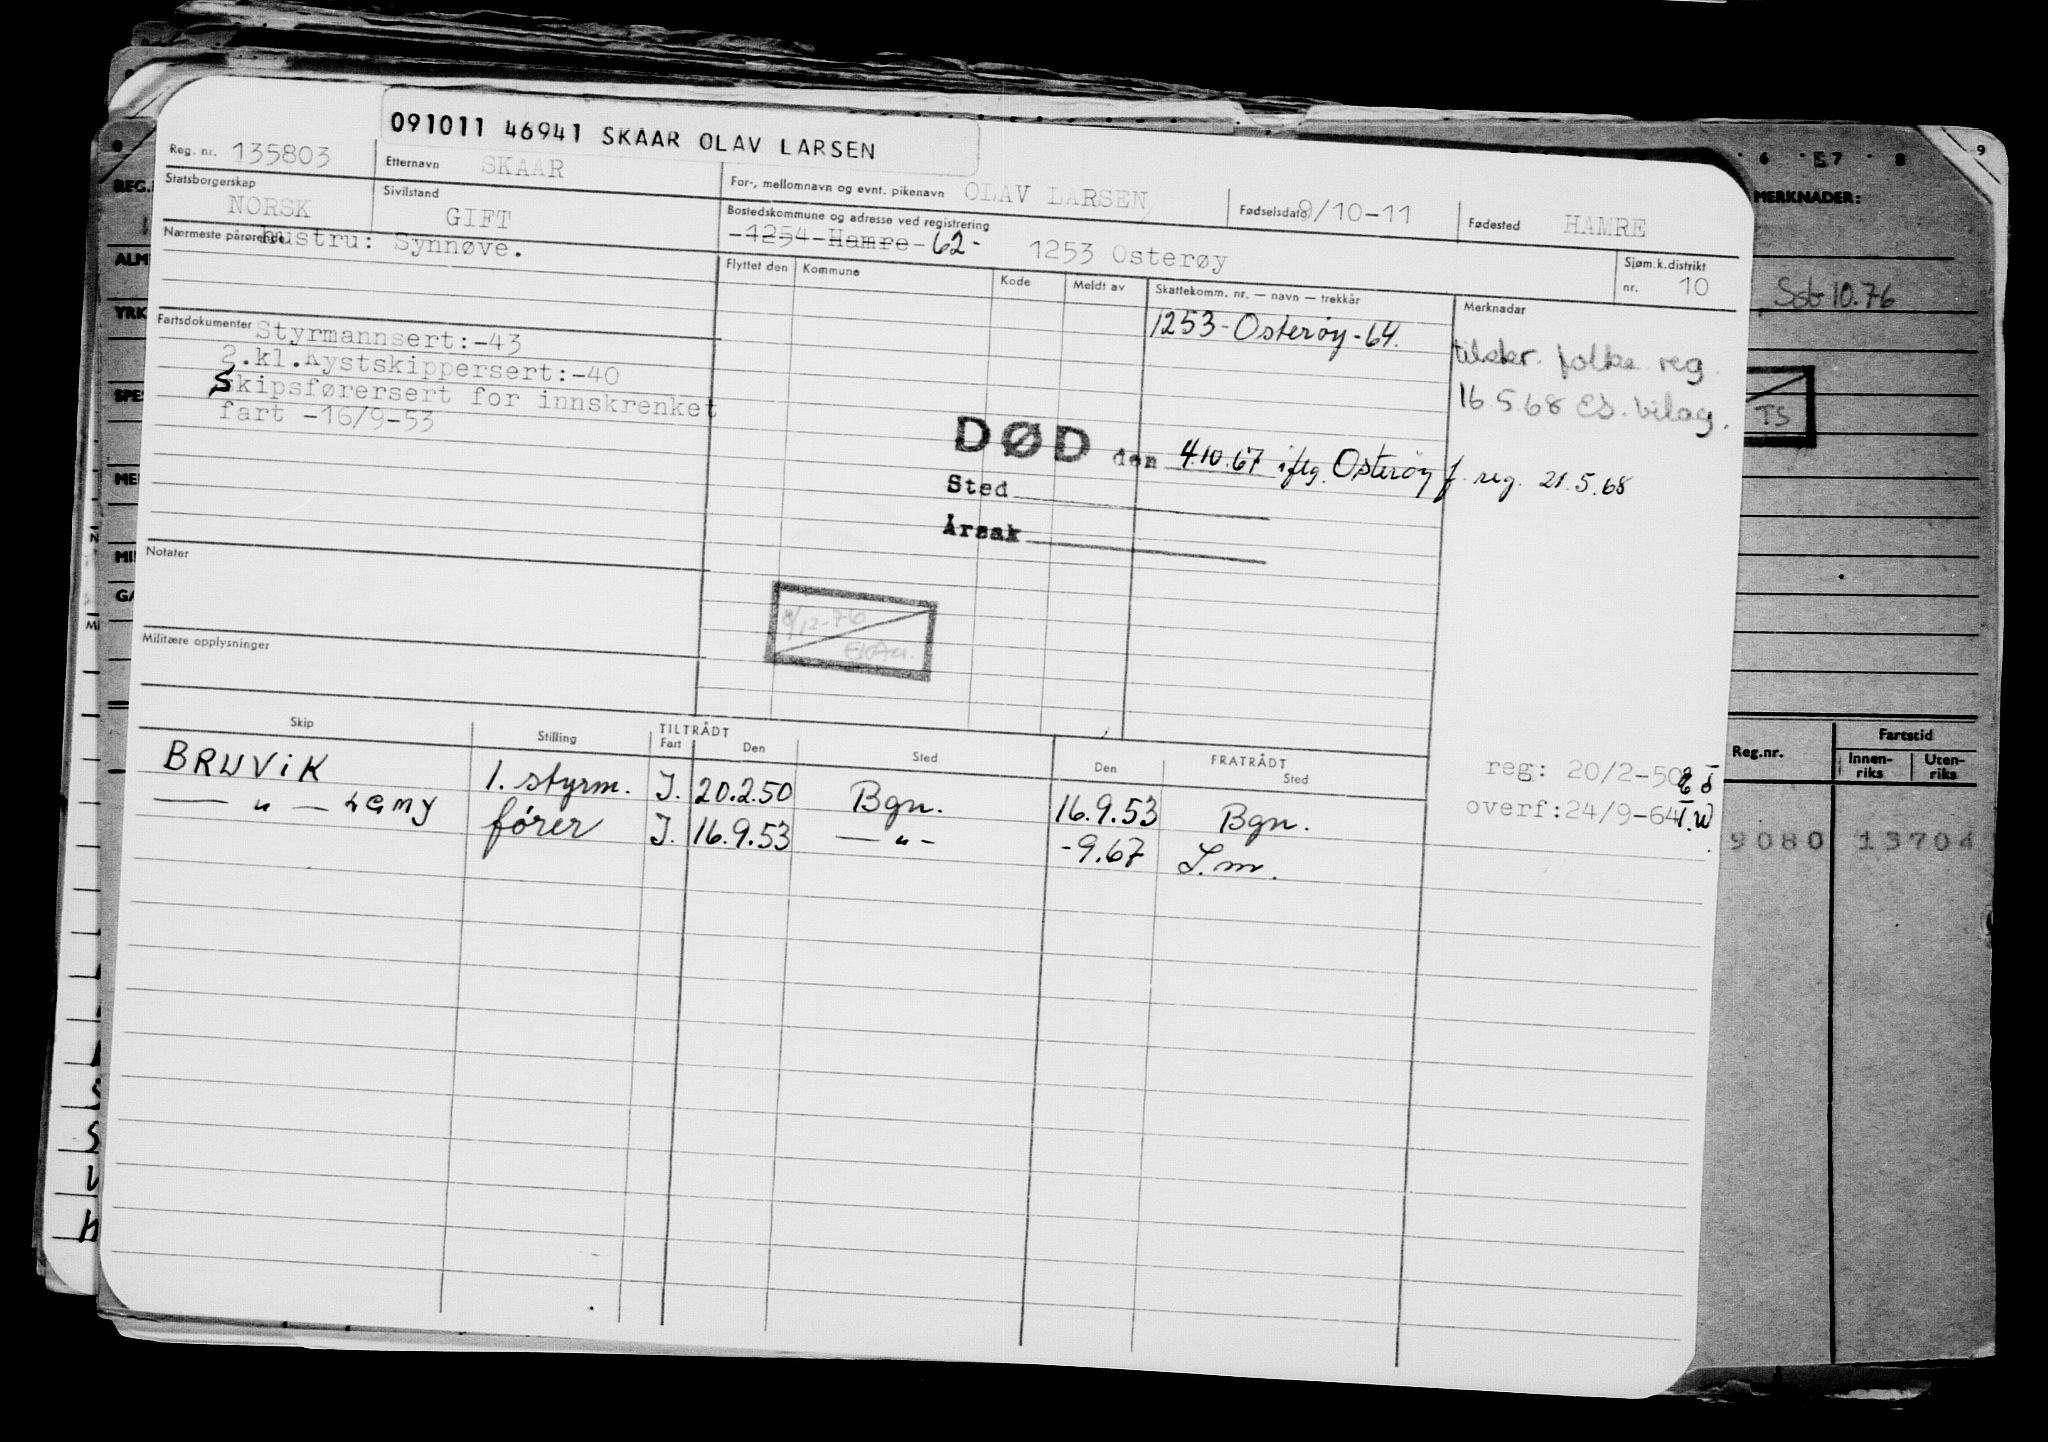 091011 46941 SKAAR OLAV LARSEN
Reg. nr. 135803
Etternavn SKAAR
For-, mellomnavn og evnt. pikenavn OLAV LARSEN
Fødselsdato 9/10-11
Fødested HAMRE
Statsborgerskap NORSK
Sivilstand GIFT
Bostedskommune og adresse ved registrering
-1254-Hamre-62- 1253 Osterøy
Sjøm.k.distrikt
nr. 10
Nærmeste pårørende hustru: Synnøve.
Flyttet den Kommune Kode Meldt av Skattekomm. nr. — navn — trekkår Merknadar
1253-Osterøy-64.
Fartsdokumenter Styrmannsert:-43
2.kl.Kystskippersert:-40
Skipsførersert for innskrenket
fart -16/9-53
folke reg.
16.5.68 bilag.
DØD den 4.10.67 iflg. Osterøy f. reg. 21.5.68
Sted
Årsak
Notater
8/12-76
Militære opplysninger
Skip Stilling TILTRÅDT Fart Den Sted FRATRÅDT Den Sted
BRUVIK 1. styrm. I. 20.2.50 Bgn. 16.9.53 Bgn.
— " — fører I. 16.9.53 — " - -9.67 S.m.
reg: 20/2-50
overf:24/9-64
6 7 8 9
MERKNADER:
10.76
TS
Reg.nr. Fartstid
Innen-
riks
Uten-
riks
9080 13704